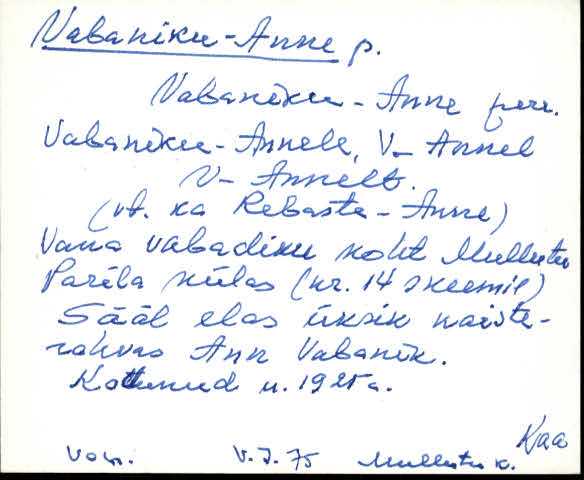 Vabaniku-Anne p.
Vabaniku-Anne pere.
Vabaniku-Annele, V- Annel
V- Annelt.
(vt. ka Rebaste-Anne)
Vana vabadiku koht Mullutu
Paréla külas (nr. 14 skeemil)
Sääl elas üksik naiste-
rahvas Ann Vabanik.
Kattunud u. 1925 a.
Kaa
V. J. 75 Mullutu k.